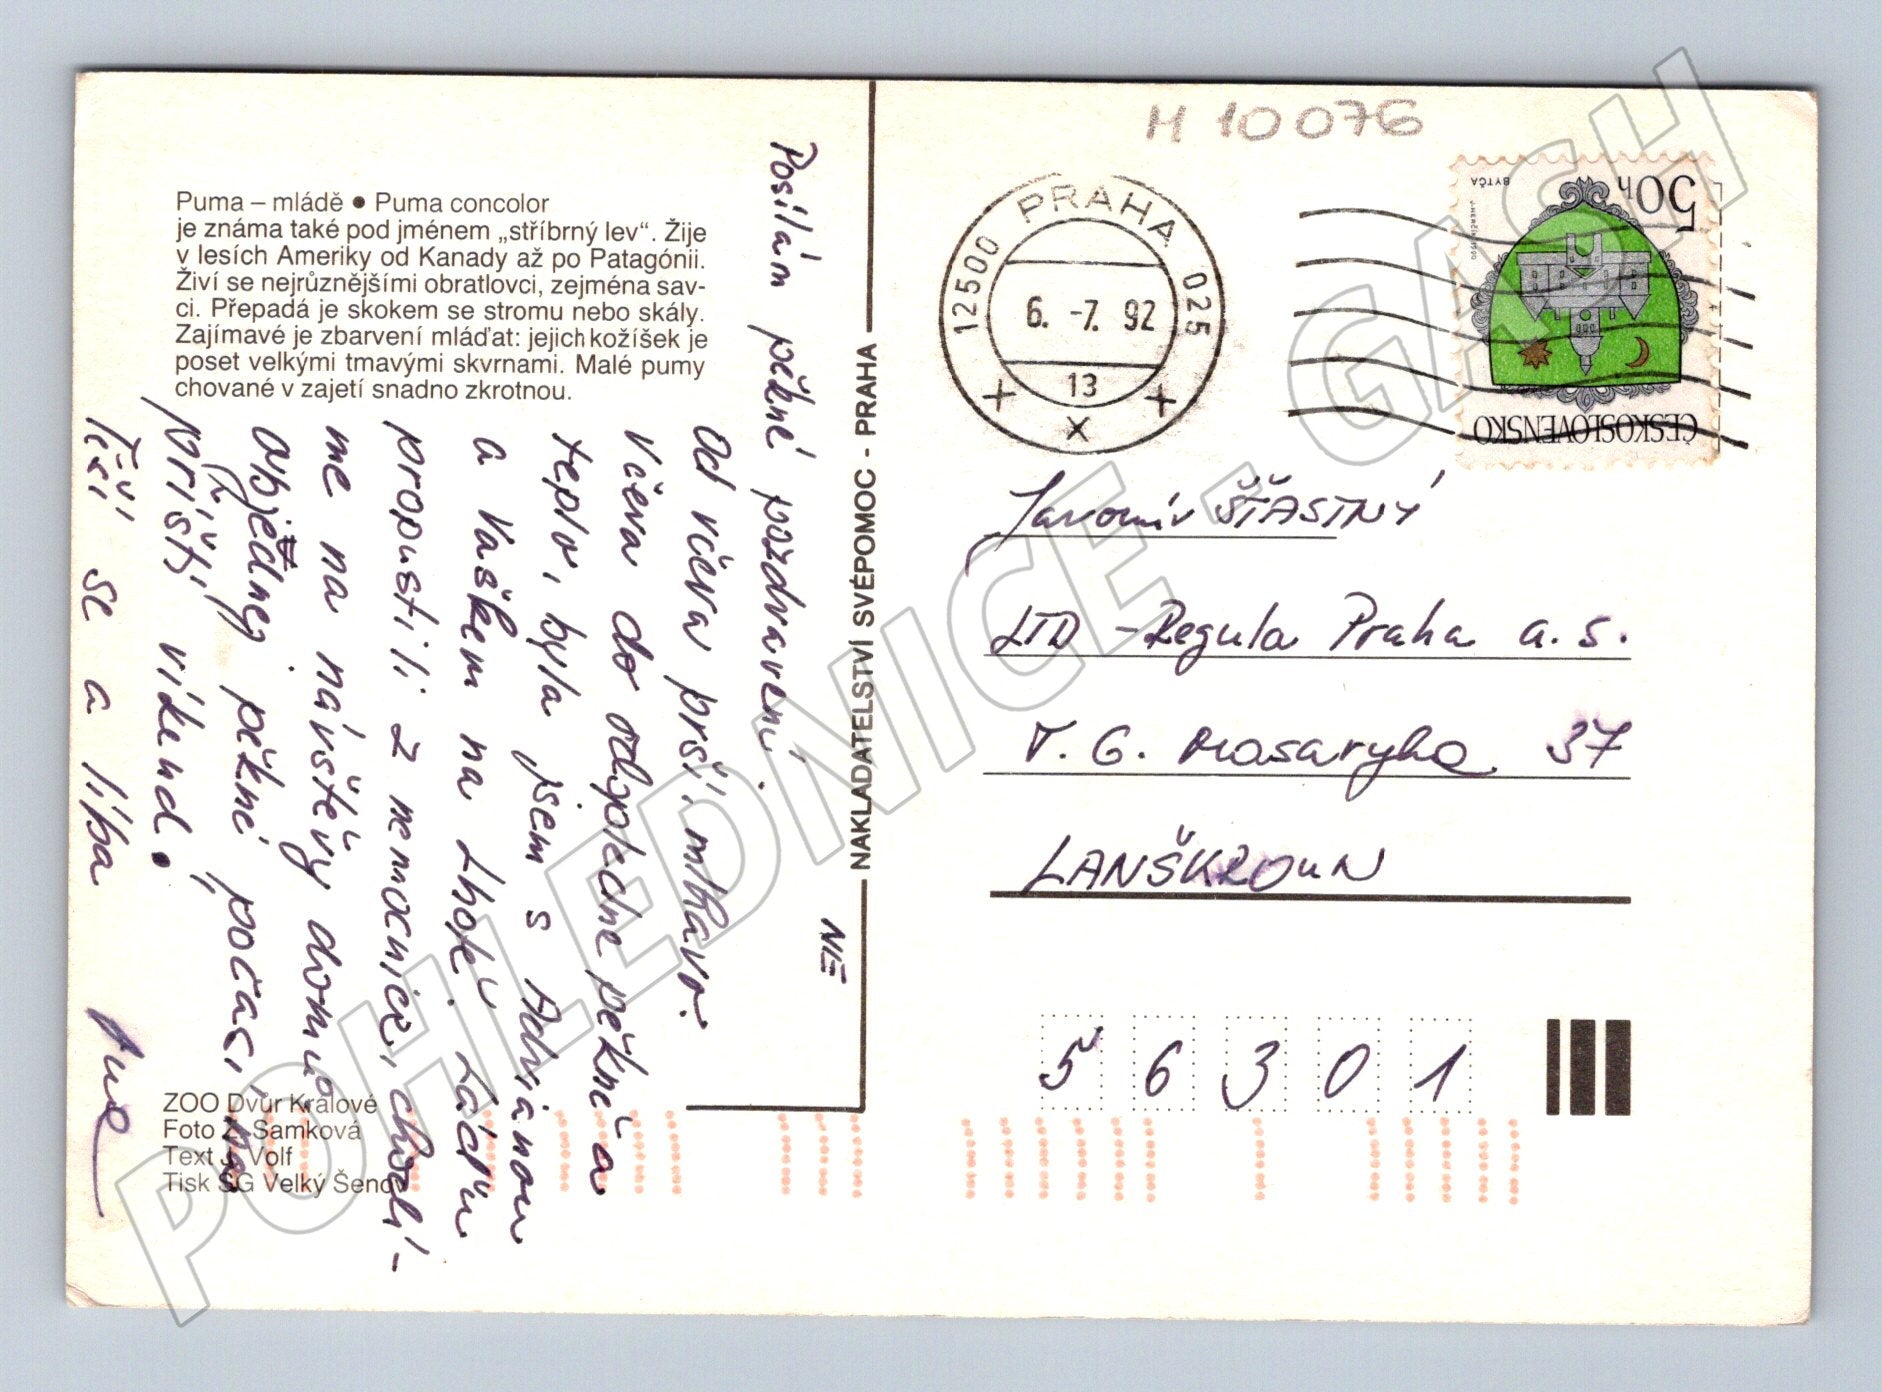 Puma – mládě ● Puma concolor
je známa také pod jménem „stříbrný lev“. Žije
v lesích Ameriky od Kanady až po Patagónii.
Živí se nejrůznějšími obratlovci, zejména sav-
ci. Přepadá je skokem se stromu nebo skály.
Zajímavé je zbarvení mláďat: jejich kožíšek je
poset velkými tmavými skvrnami. Malé pumy
chované v zajetí snadno zkrotnou.
Posílám pěkné pozdravení.
Od včera prší, mlhavo.
Včera do odpoledne pěkně a
teplo, byla jsem s Adrianou
a Vaškem na Lhotě. Láďu
propustili z nemocnice, chodí-
me na návštěvy domů.
Objednej pěkné počasí, na
příští víkend.
Těší se a líbá
NE
ZOO Dvůr Králové
Foto Z. Samková
Text J. Volf
Tisk SG Velký Šenov
NAKLADATELSTVÍ SVÉPOMOC - PRAHA
M 10076
PRAHA 025
12500
6. -7. 92
13
50h
BYTČA
ČESKOSLOVENSKO
Jaromír ŠŤASTNÝ
LTD - Regula Praha a. s.
T. G. Masaryka 37
LANŠKROUN
56301
POHLEDNICE - GASH